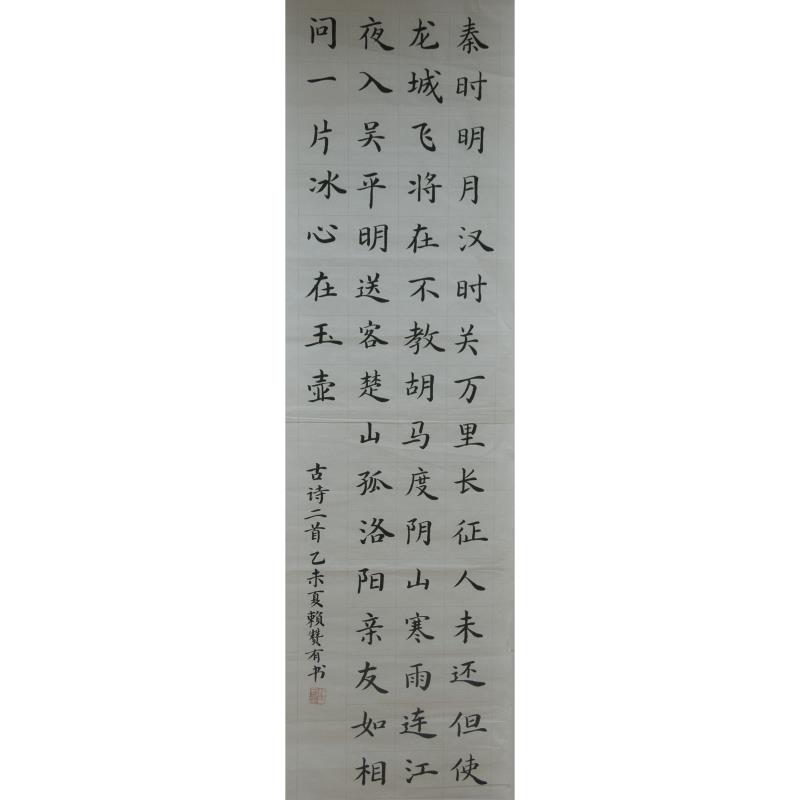 秦时明月汉时关万里长征人未还但使
龙城飞将在不教胡马度阴山寒雨连江
夜入吴平明送客楚山孤洛阳亲友如相
问一片冰心在玉壶
古诗二首乙未夏赖赞有书